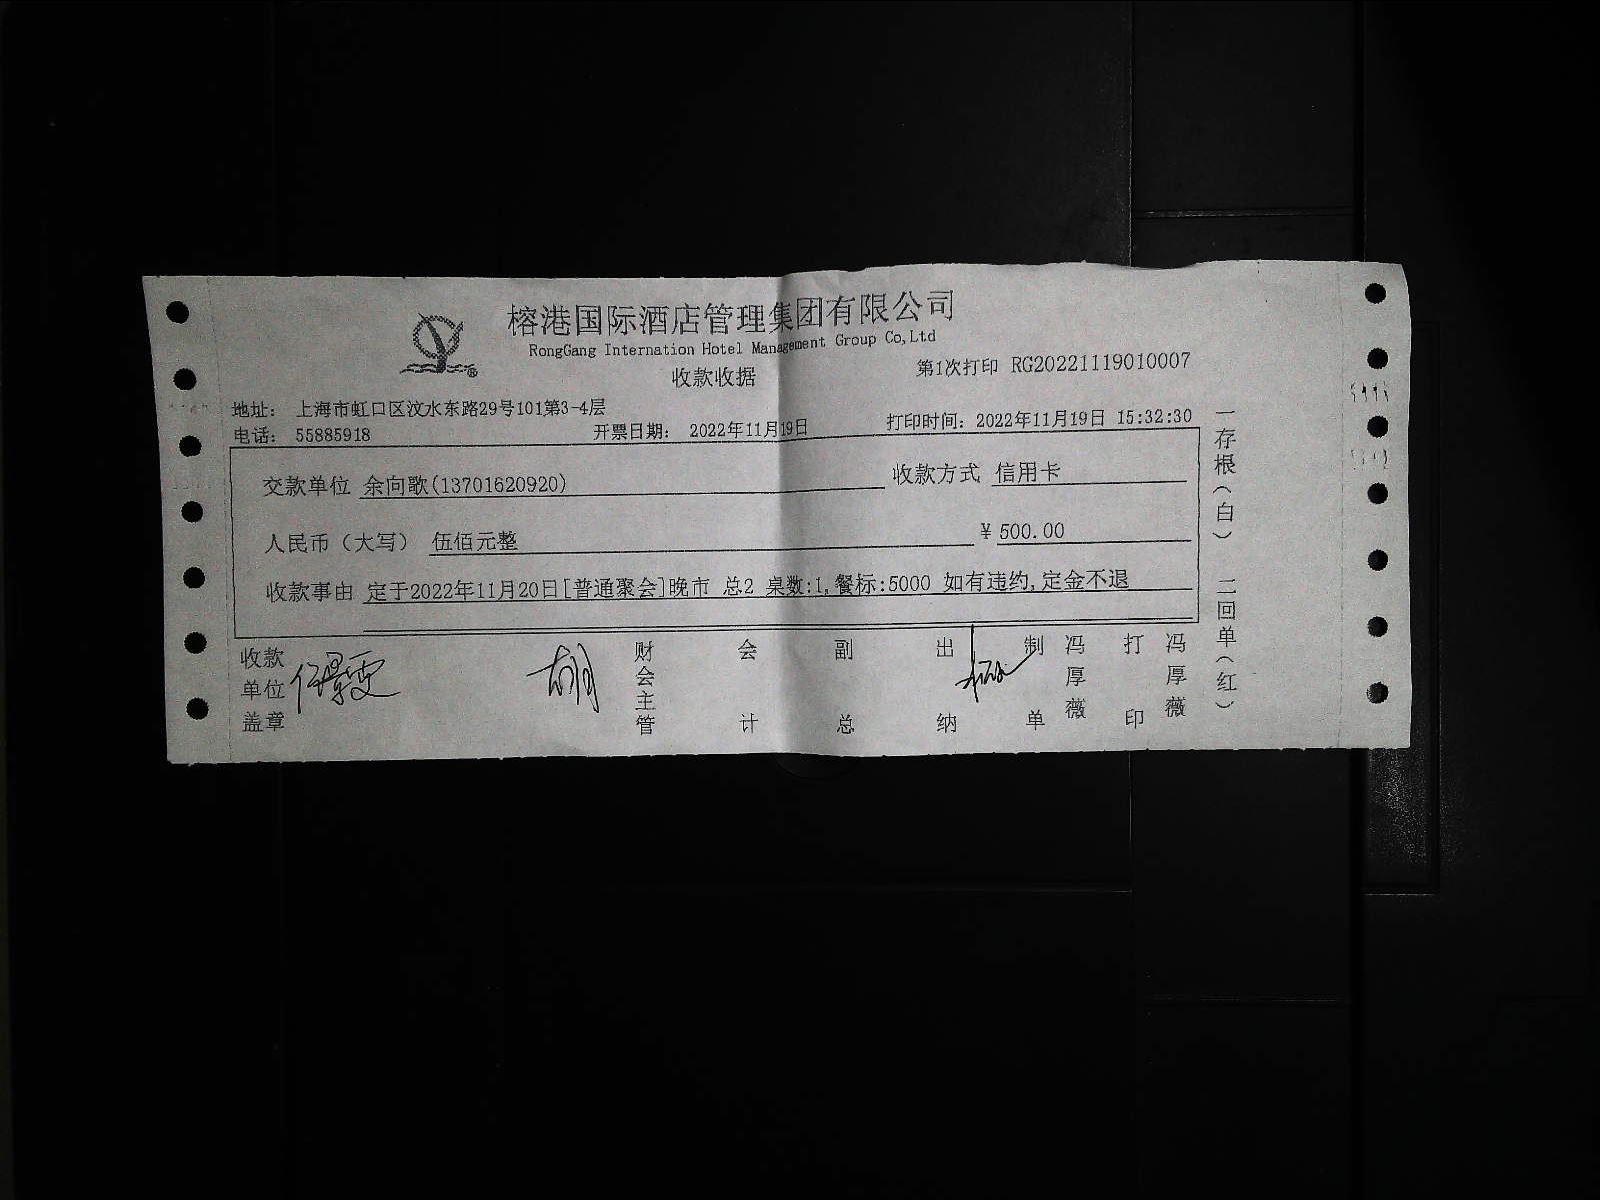 榕港国际酒店管理集团有限公司
RongGang Internation Hotel Management Group Co,Ltd
收款收据
第1次打印 RG20221119010007
地址： 上海市虹口区汶水东路29号101第3-4层
电话： 55885918 开票日期： 2022年11月19日 打印时间：2022年11月19日 15:32:30
交款单位 余向歌(13701620920) 收款方式 信用卡
人民币（大写） 伍佰元整 ￥500.00
收款事由 定于2022年11月20日[普通聚会]晚市 总2 桌数:1,餐标:5000 如有违约,定金不退
收款单位盖章 财会主管 会计 副总 出纳 制单 冯厚薇 打印 冯厚薇
一存根（白） 二回单（红）